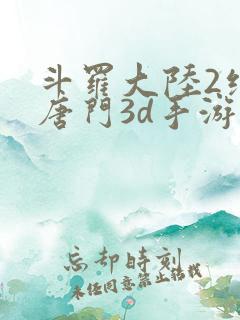 斗羅大陸2
唐門3d手游
忘却時刻
未经同意禁止转载